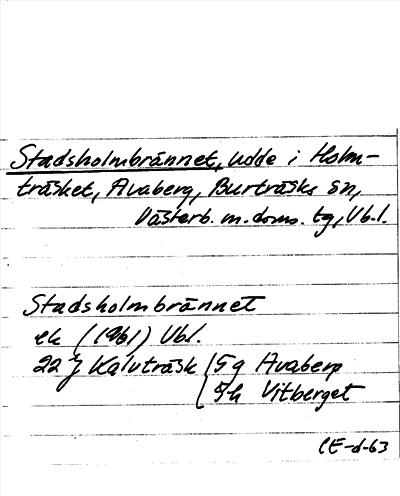 Stadsholmbrännet, udde i Holm-
träsket, Avaberg, Burträsks sn,
Västerb. m. doms. tg, Vb. l.
Stadsholmbrännet
ek (1961) Vbl.
22 J Kalvträsk 5g Avaberg
5h Vitberget
CE-d-63